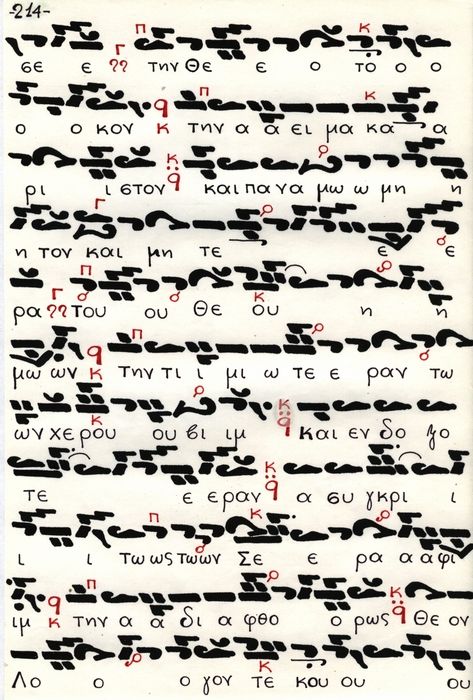 214-
Π Κ
σε ε Γ ?? την Θε ε ο το ο ο
Π Κ
ο ο κον q κ την α α ει μα κα α
Κ
ρι ι στον q και πα να μω ω μη η
Γ
η τον και μη τε ε ε
Π
ρα Γ ?? του ου Θε ου κ η η
Π
μω ων q κ την τι ι μι ω τε ε ραν τω
Κ
ων χε ρου κ ου βι ιμ q Και εν δο ξο
Κ
τε ε εραν q α συ γκρι ι
Π Κ
ι ι τω ως των Σε ε ρα α αφι
Π Κ
ιμ q κ την α α δι α φθο ο ρως q Θε ον
Λο ο ο γον τε κ κου ου ου